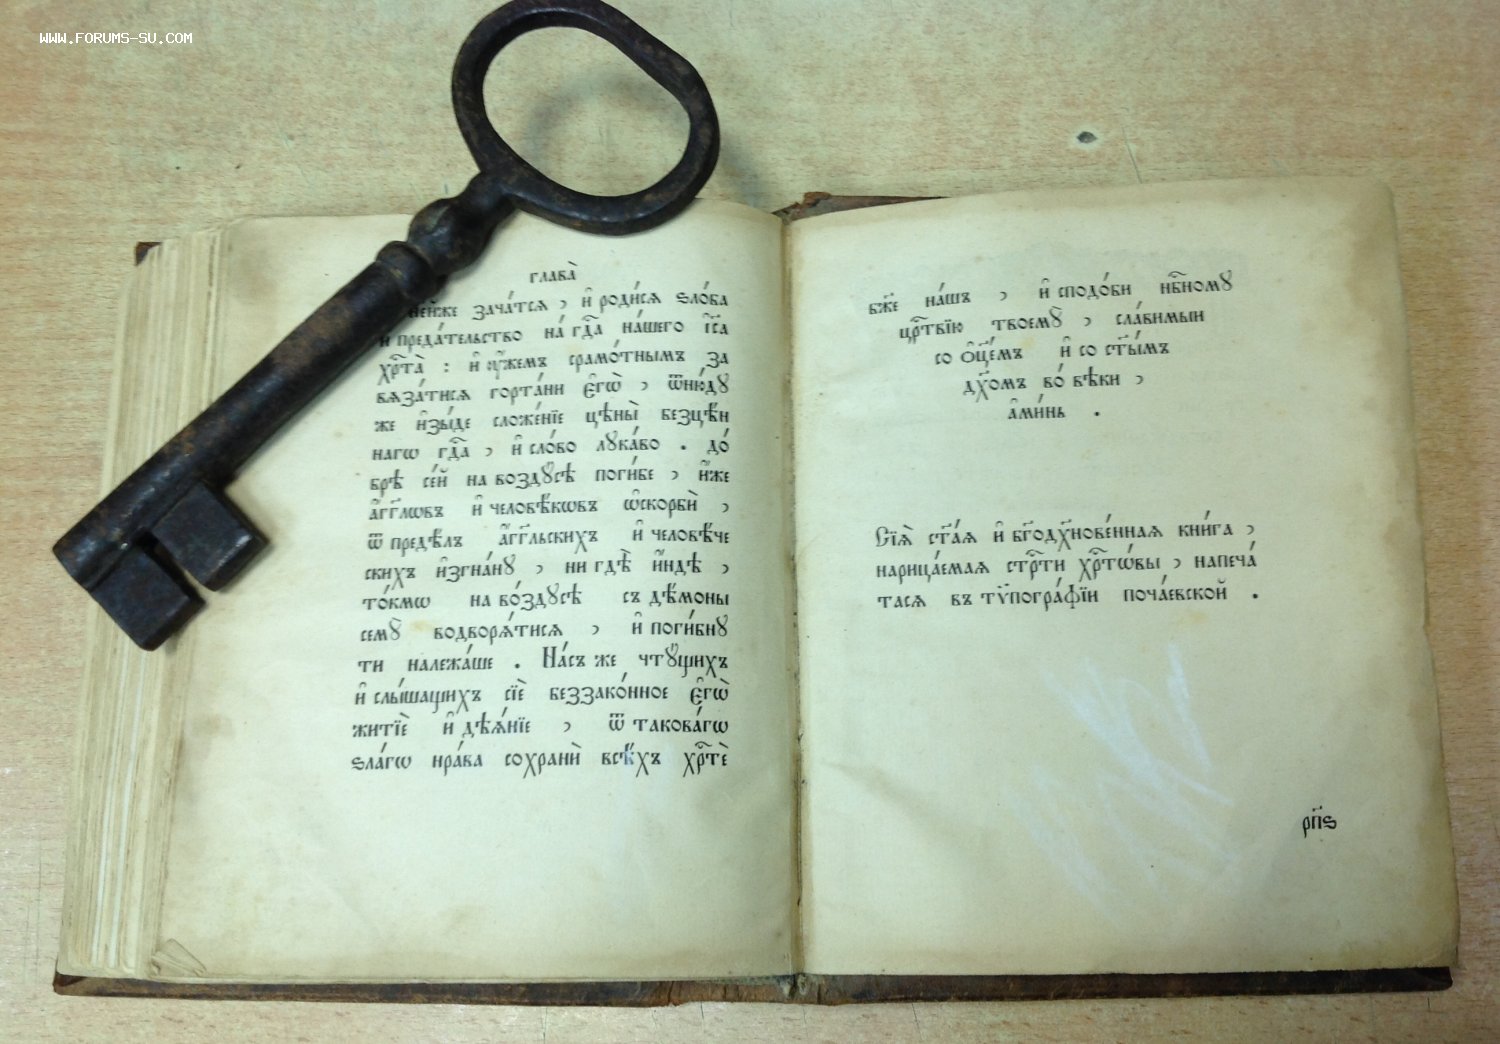 WWW.FORUMS-SU.COM
глава̀
зача́тся , и҆ роди́сѧ ѕло́ба
и преда́тельство на́ гдⷭ҇а на́шего і҆и҃са
хрⷭ҇та̀ : и҆ ᲂу҆́жемъ срамо́тнымъ за
вѧза́тисѧ горта́ни є҆гѡ̀ , ѿню́дꙋ
же и҆зы́де сложе́нїе цѣны̀ безцѣ́н
нагѡ гдⷭ҇а , и҆ сло́во лꙋка́во . до́
брѣ се́й на возд́ꙋсѣ поги́бе , и҆́же
а҆́гг҃лѡвъ и҆ человѣ́кѡвъ ѡ҆скорбѝ ,
ѿ предѣ́лъ а҆́гг҃льскихъ и҆ человѣ́че
скихъ и҆згна́нꙋ , ни гдѣ̀ и҆́ндѣ ,
то́кмѡ на во́здꙋсѣ съ дѣ́моны
семꙋ̀ водворѧ́тисѧ , и҆ поги́бнꙋ
ти належа́ше . На́съ же чтꙋ́щихъ
и҆ слы́шащихъ сїѐ беззако́нное є҆гѡ̀
житїѐ и҆ дѣѧ́нїе , ѿ такова́гѡ
ѕла́гѡ нра́ва сохранѝ всѣ́хъ хрⷭ҇тѐ
бж҃е на́шъ , и҆ сподо́би нбⷭ҇номꙋ
црⷭ҇твїю твоемꙋ̀ , сла́вимыи
со ѻ҆ц҃е́мъ и҆ со ст҃ы́мъ
дх҃омъ во́ вѣки ,
а҆ми́нь .
Сїѧ̀ ст҃а́ѧ и҆ бг҃одх҃нове́ннаѧ кни́га ,
нарица́емаѧ стрⷭ҇ти хрⷭ҇тѡ́вы , напеча́
тасѧ въ тѷпогра́фїи поча́евской .
рп҃ѕ